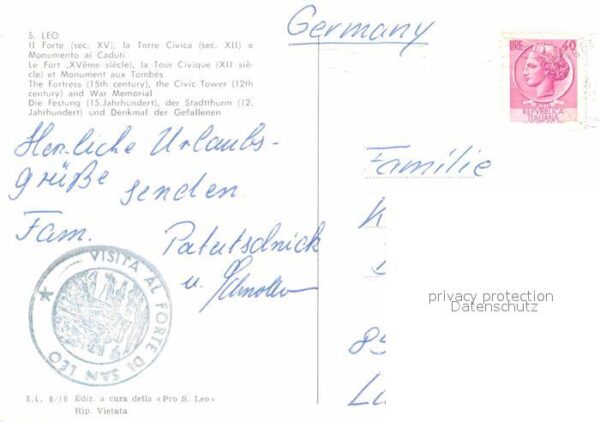 S. LEO
Il Forte (sec. XV), la Torre Civica (sec. XII) e
Monumento ai Caduti
Le Fort (XVème siècle), la Tour Civique (XII siè-
cle) et Monument aux Tombès
The Fortress (15th century), the Civic Tower (12th
century) and War Memorial
Die Festung (15.Jahrhundert), der Stadtthurm (12.
Jahrhundert) und Denkmal der Gefallenen
Germany
LIRE 40
REPVBBLICA
ITALIANA
Herzliche Urlaubs-
grüße senden
Fam. Patutschnick
u.
Familie
K
85
Lu
privacy protection
Datenschutz
VISITA AL FORTE DI SAN LEO
S.L. 6/10 Ediz. a cura della «Pro S. Leo»
Rip. Vietata